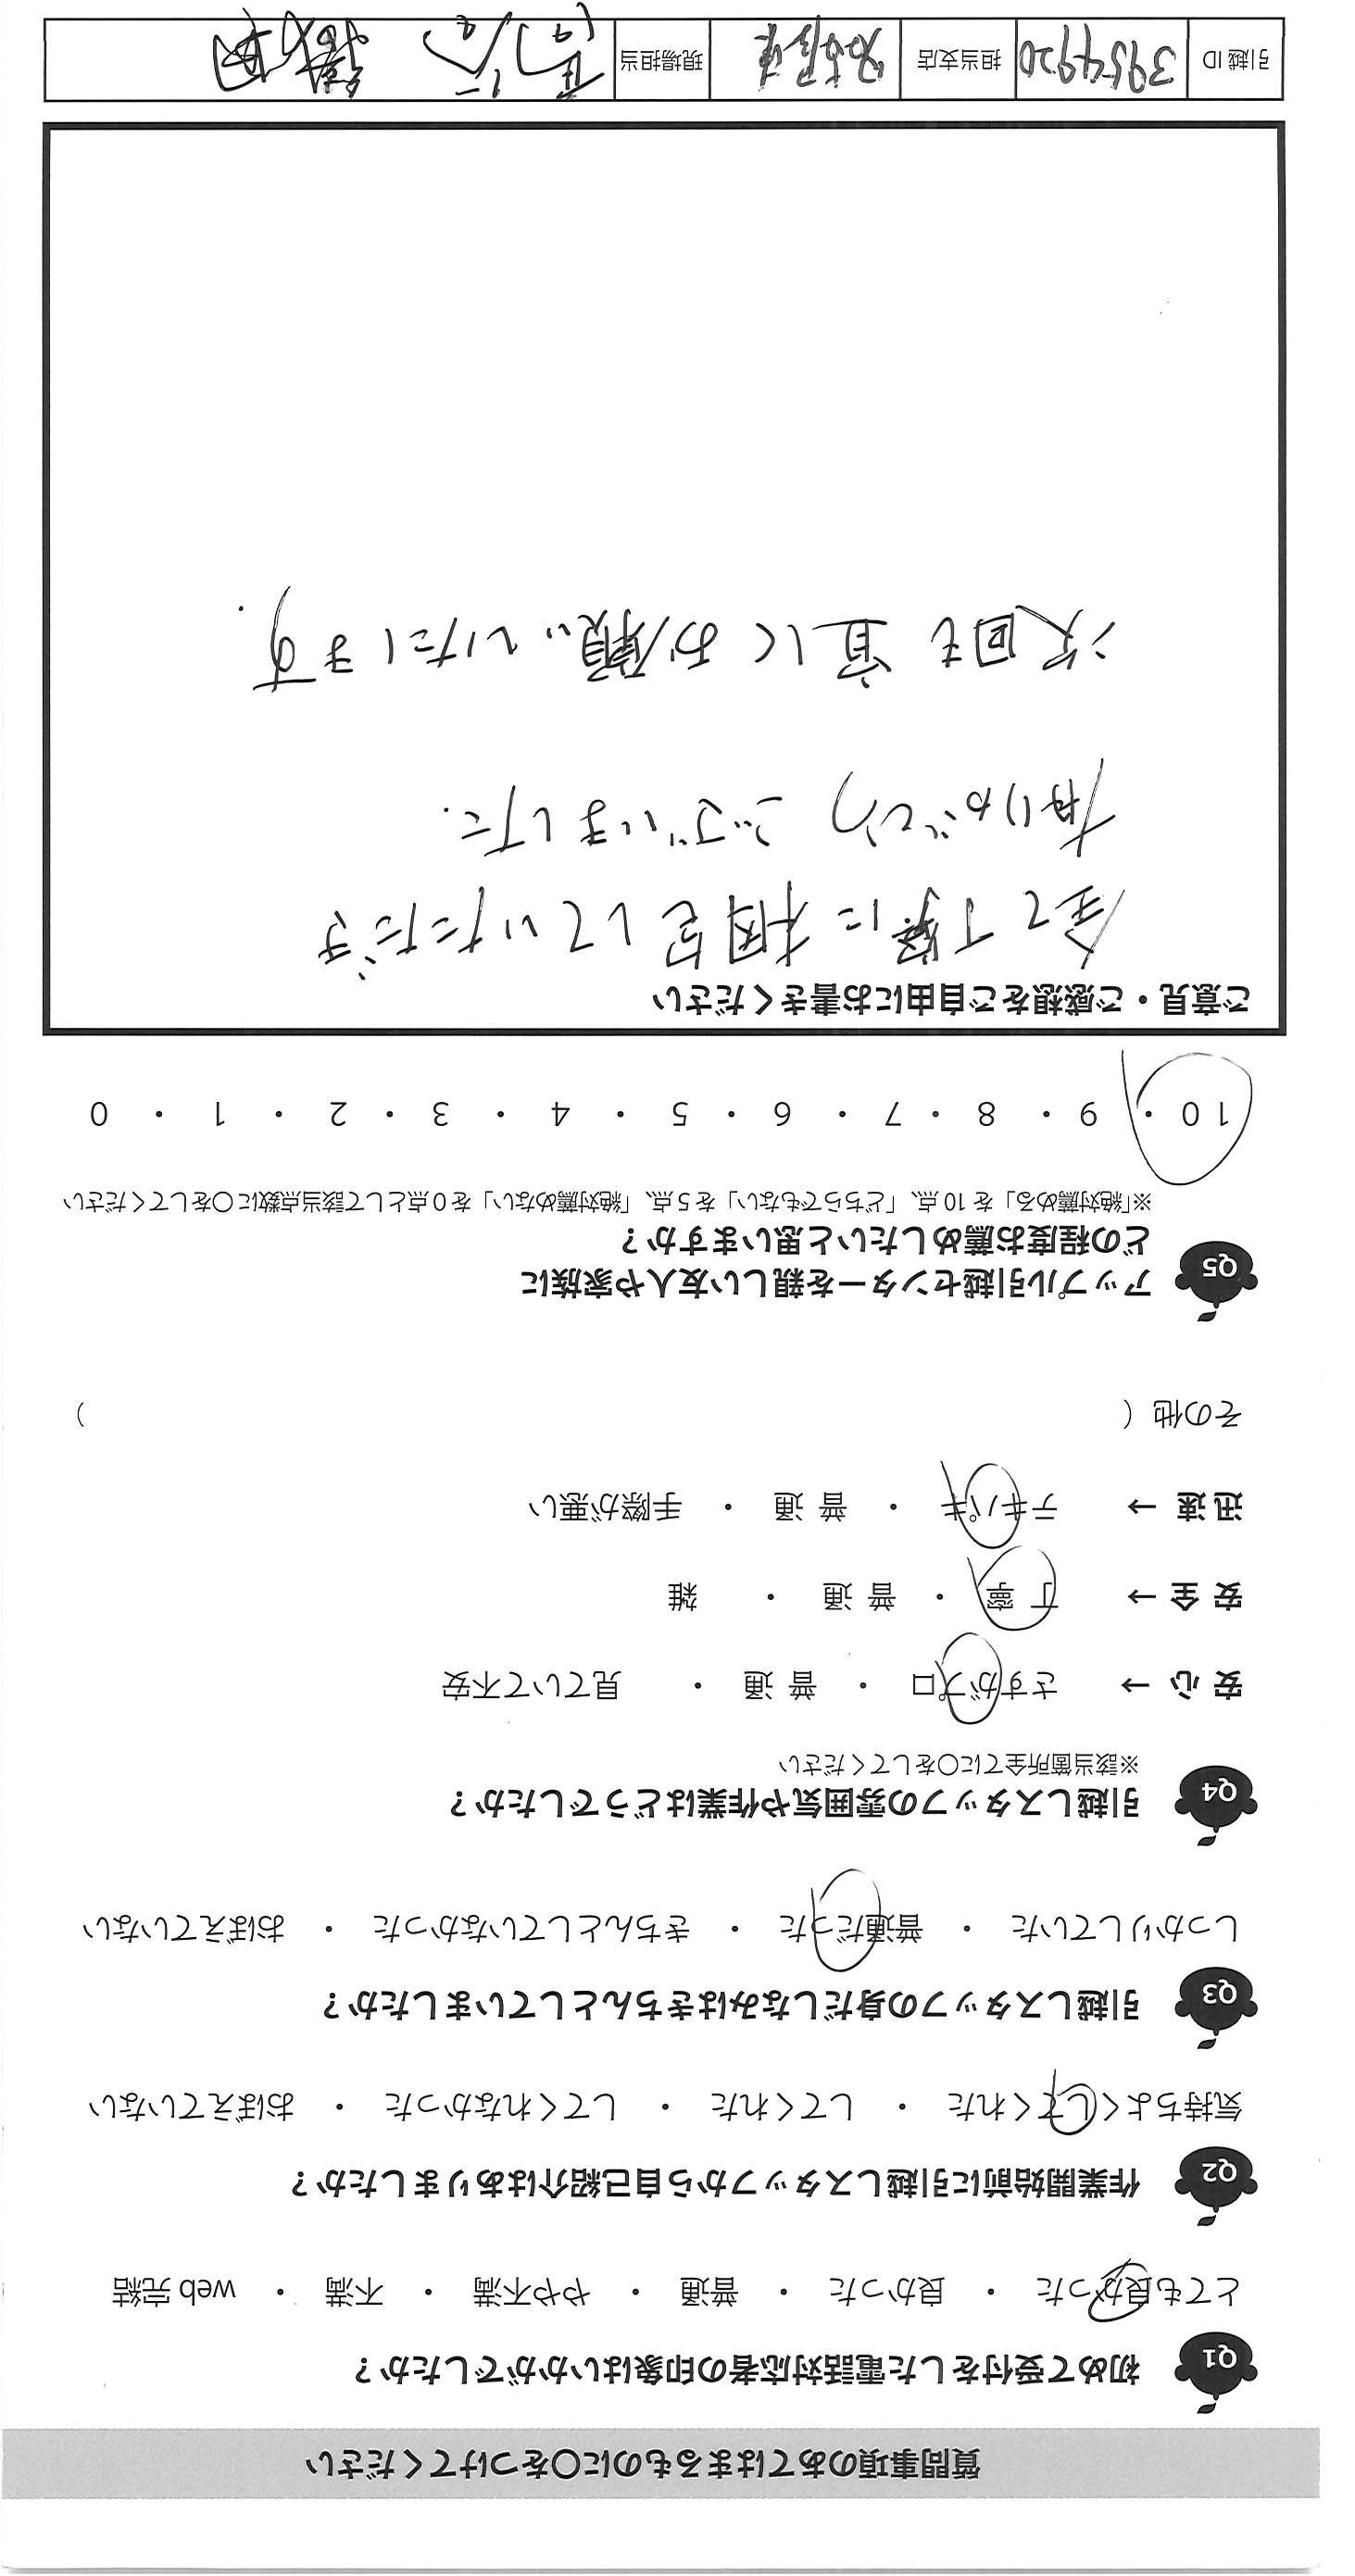 質問事項のあてはまるものに○をつけてください
Q1 初めて受付をした電話対応者の印象はいかがでしたか？
とても良かった ・ 良かった ・ 普通 ・ やや不満 ・ 不満 ・ web 完結
Q2 作業開始前に引越しスタッフから自己紹介はありましたか？
気持ちよくしてくれた ・ してくれた ・ してくれなかった ・ おぼえていない
Q3 引越しスタッフの身だしなみはきちんとしていましたか？
しっかりしていた ・ 普通だった ・ きちんとしていなかった ・ おぼえていない
Q4 引越しスタッフの雰囲気や作業はどうでしたか？
※該当箇所全てに○をしてください
安心 → さすがプロ ・ 普通 ・ 見ていて不安
安全 → 丁寧 ・ 普通 ・ 雑
迅速 → テキパキ ・ 普通 ・ 手際が悪い
その他（ ）
Q5 アップル引越センターを親しい友人や家族に
どの程度お薦めしたいと思いますか？
※「絶対薦める」を 10 点、「どちらでもない」を 5 点、「絶対薦めない」を 0 点として該当点数に○をしてください
10 ・ 9 ・ 8 ・ 7 ・ 6 ・ 5 ・ 4 ・ 3 ・ 2 ・ 1 ・ 0
ご意見・ご感想をご自由にお書きください
全て丁寧に梱包していただき
ありがとうございました.
次回も宜しくお願いいたします.
引越 ID 3954920 担当支店 名古屋 現場担当